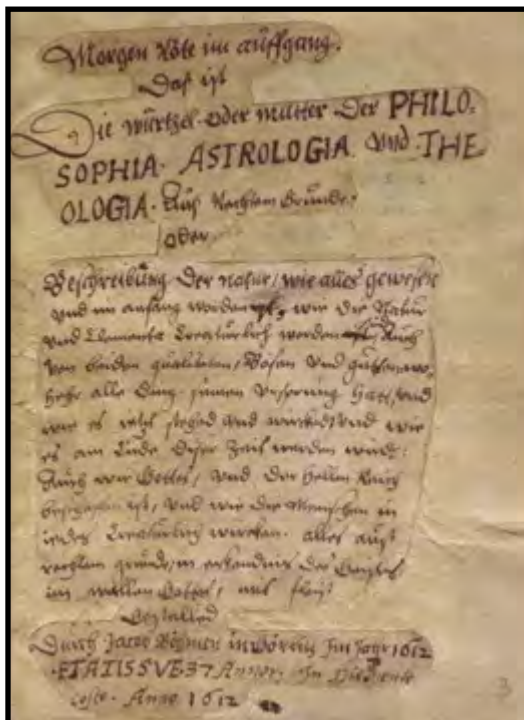 Morgen Röte im auffgang.
Das ist
Die wurtzel oder mutter der PHILO,
SOPHIA. ASTROLOGIA. Vnd THE
OLOGIA. Auß Rechtem Grunde.
oder,
Beschreibung der natur / wie alles gewesen
vnd im anfang worden ist, wie die Natur
vnd Elementa Creaturlich worden Auch
von beiden qualiteten / Bösen vnd gutten, wo,
hehr alle Ding seinen Vrsprung hatt / vnd
wie es itzt stehed vnd wircked / vnd wie
es am Ende diser Zeit werden wirdt:
Auch wie Gottes / vnd der Hellen Reich
beschaffen ist / vnd wie die Menschen in
iedes Creaturlich wircken. alles auß
rechtem grunde / in erkendnis des Geistes
im wallen Gottes / mit fleiß
Gestelled
Durch Jacob Böhmen in Görlitz Im Jahr 1612
ÆTATIS SVE 37 Annor. In Die Pente
coste. Anno 1612
3